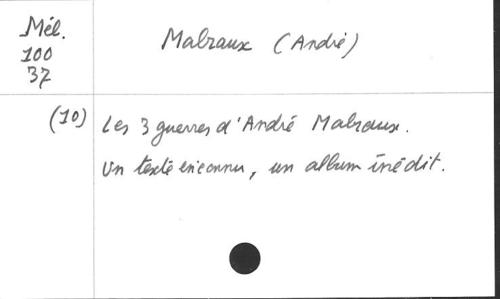 Mél.
100
37
Malraux (André)
(10) Les 3 guerres d'André Malraux.
Un texte inconnu, un album inédit.